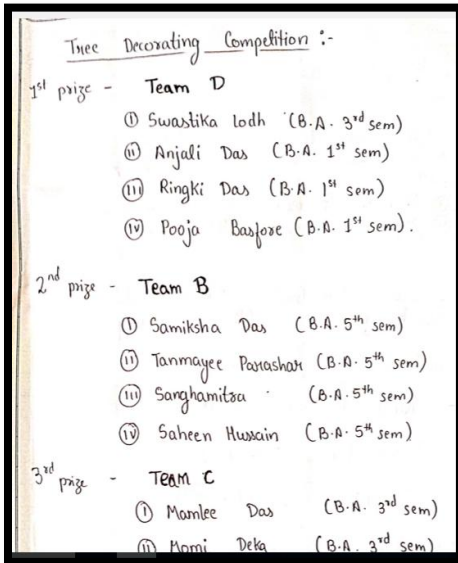 Tree Decorating Competition :-
1st prize - Team D
(i) Swastika lodh (B.A. 3rd sem)
(ii) Anjali Das (B.A. 1st sem)
(iii) Ringki Das (B.A. 1st sem)
(iv) Pooja Basfore (B.A. 1st sem).
2nd prize - Team B
(i) Samiksha Das (B.A. 5th sem)
(ii) Tanmayee Parashar (B.A. 5th sem)
(iii) Sanghamitra (B.A. 5th sem)
(iv) Saheen Hussain (B.A. 5th sem)
3rd prize - Team C
(i) Mamlee Das (B.A. 3rd sem)
(ii) Momi Deka (B.A. 3rd sem)